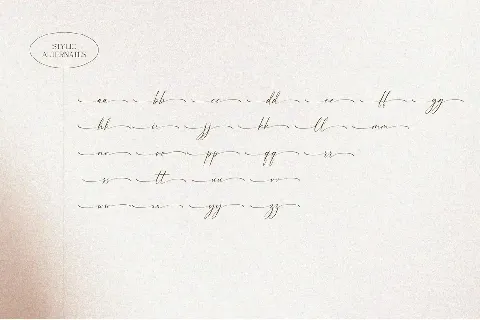 STYLE
ALTERNATES
aa bb cc dd ee ff gg
hh ii jj kk ll mm
nn oo pp qq rr
ss tt uu vv
ww xx yy zz